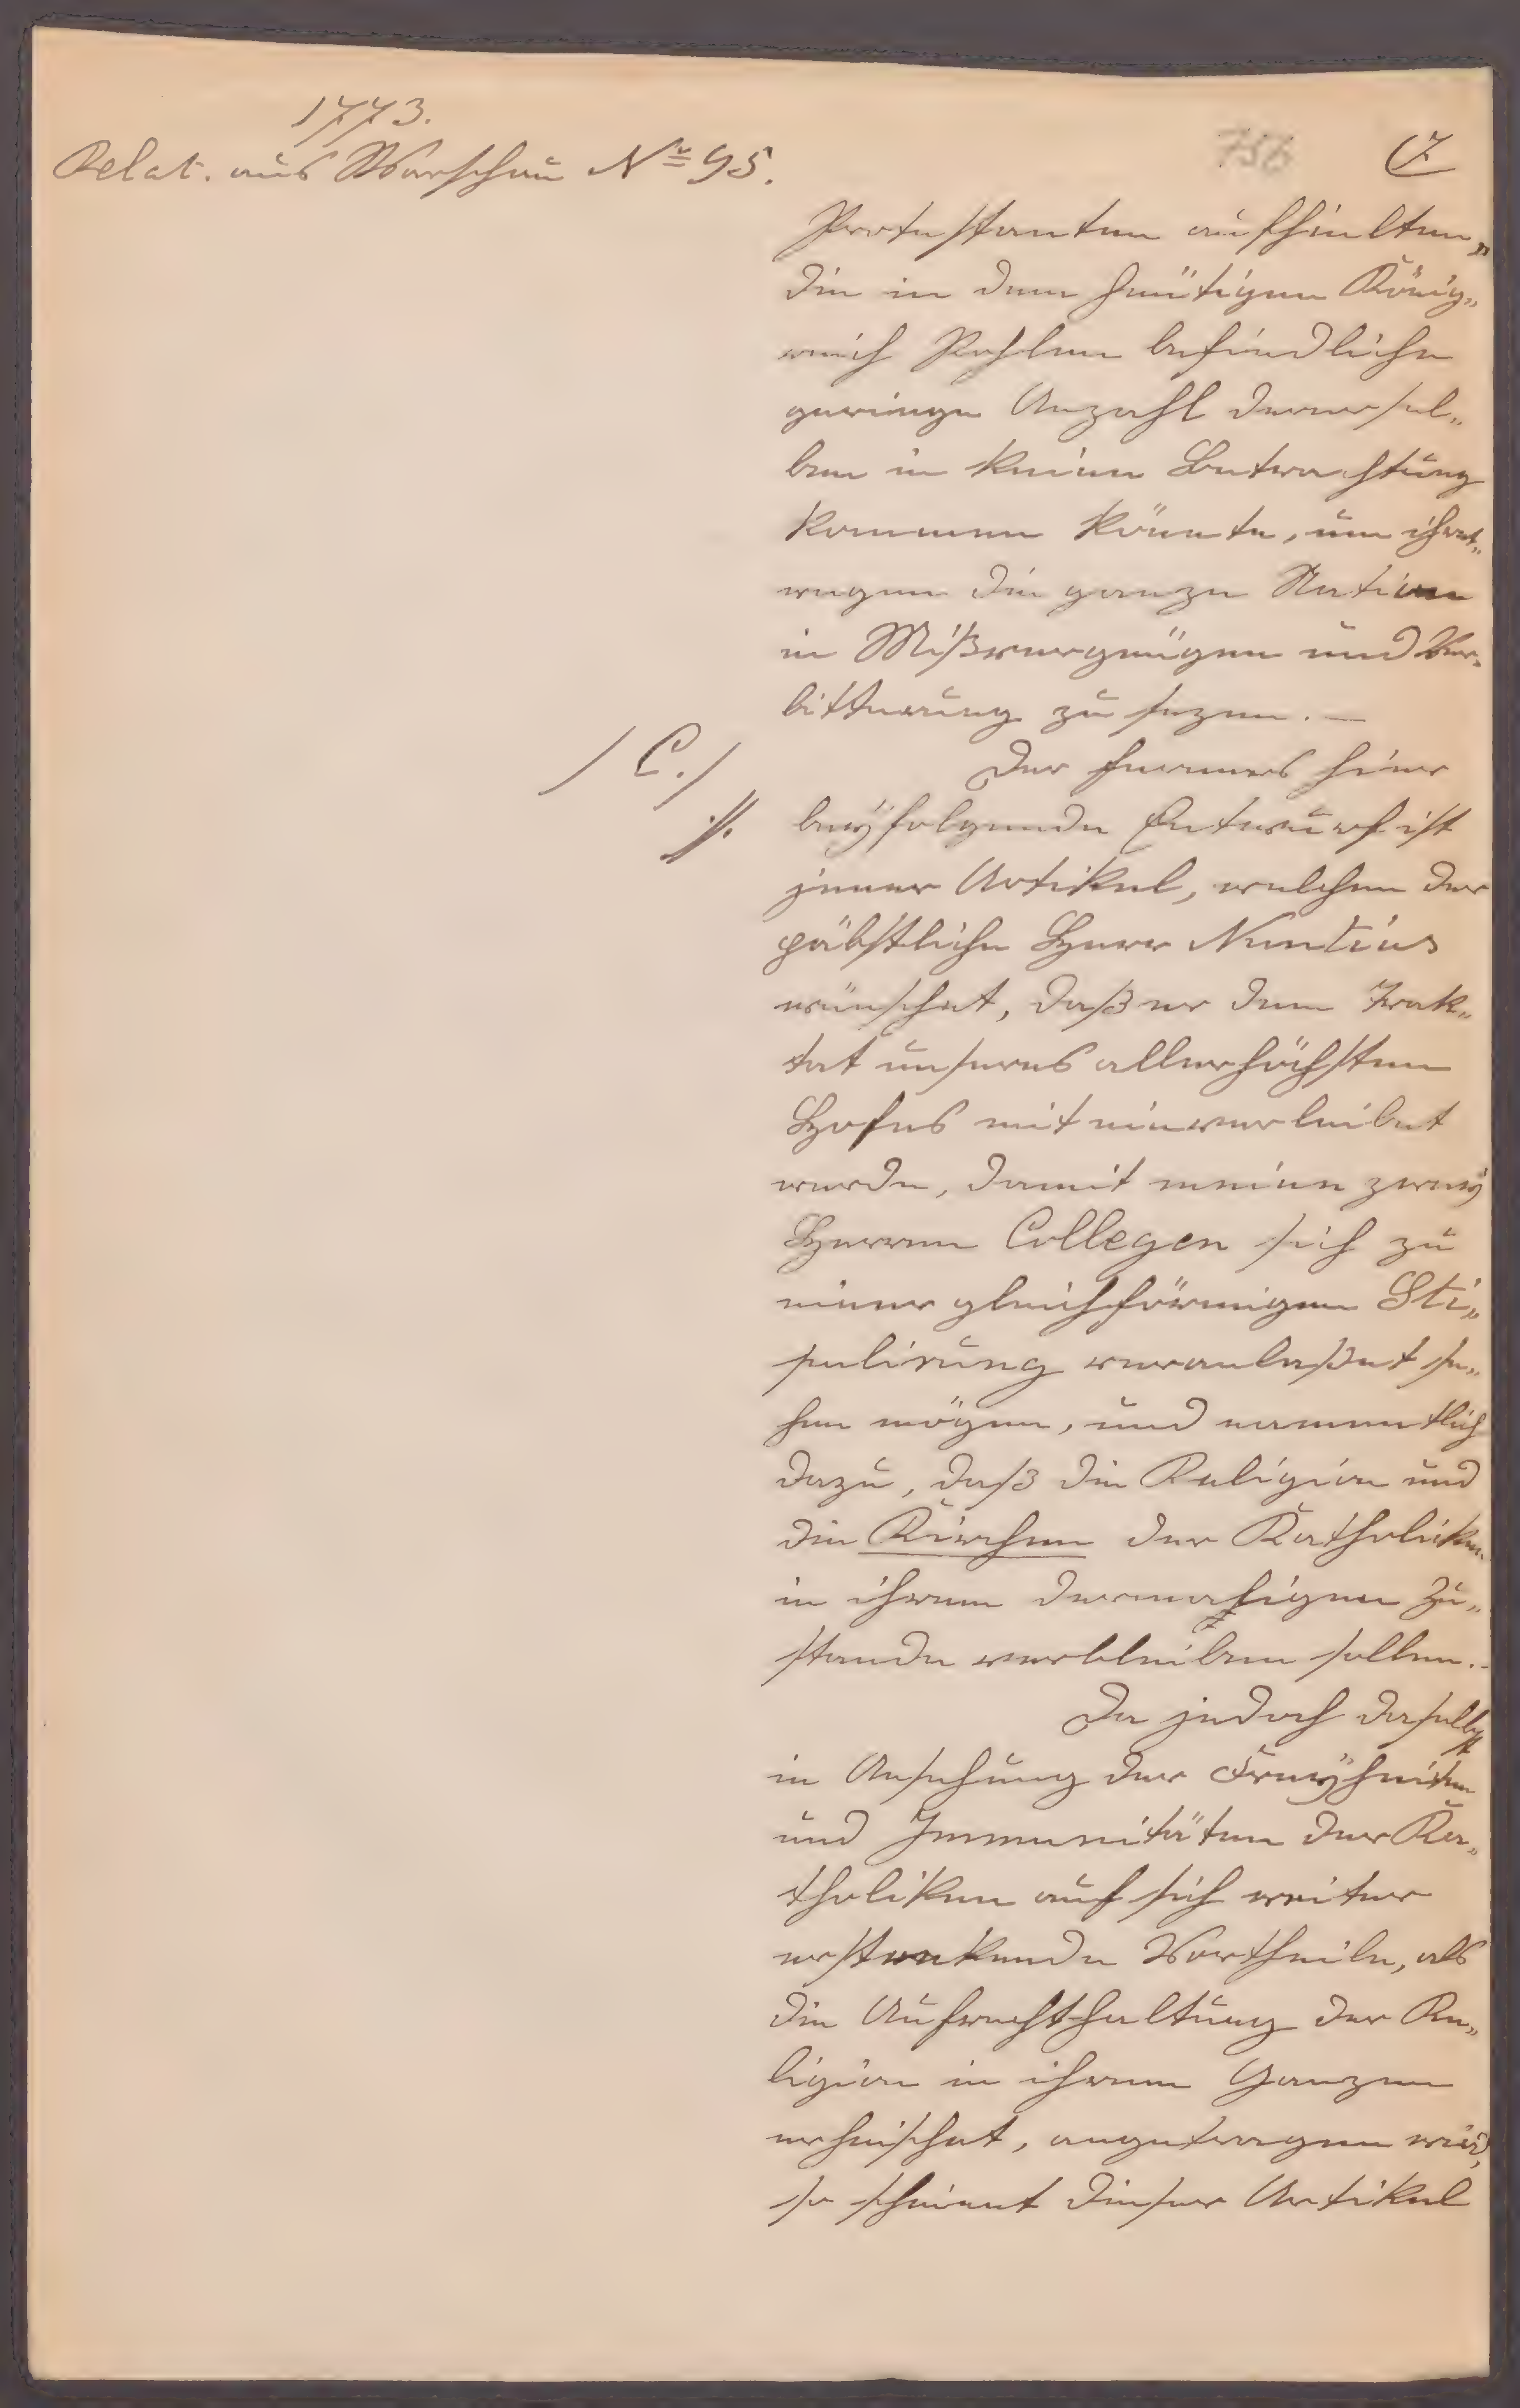 1773.
Relat. aus Warschau Nº 95.
756
7
Protestanten aufhielten,
die in dem heütigen König„
reich Pohlen befindliche
geringe Anzahl derersel„
ben in keine Betrachtung
kommen könnte, um ihret„
wegen die ganze Nation
in Mißvergnügen und Ver„
bitterung zu sezen. —
/ C. /
Der ferners hier
·/. beÿfolgende Entwurf ist
jener Artikel, welchen der
päbstliche Herr Nuntius
wünschet, daß er dem Trak„
tat unseres allerhöchsten
Hofes mit einverleibet
werde, damit meine zweÿ
Herren Collegen sich zu
einer gleichförmigen Sti„
pulirung veranlaßet se„
hen mögen, und namentlich
dazu, daß die Religion und
die Kirchen der Katholiken
in ihrem dermahligen Zu„
stande verbleiben sollen. –
Da jedoch daselbst
in Ansehung der Freÿheiten
und Immunitäten der Ka„
tholiken auf sich weiter
erstrekende Vortheile, als
die Aufrechthaltung der Re„
ligion in ihrem Ganzen
erheischet, angetragen wird,
so scheinet dieser Artikel